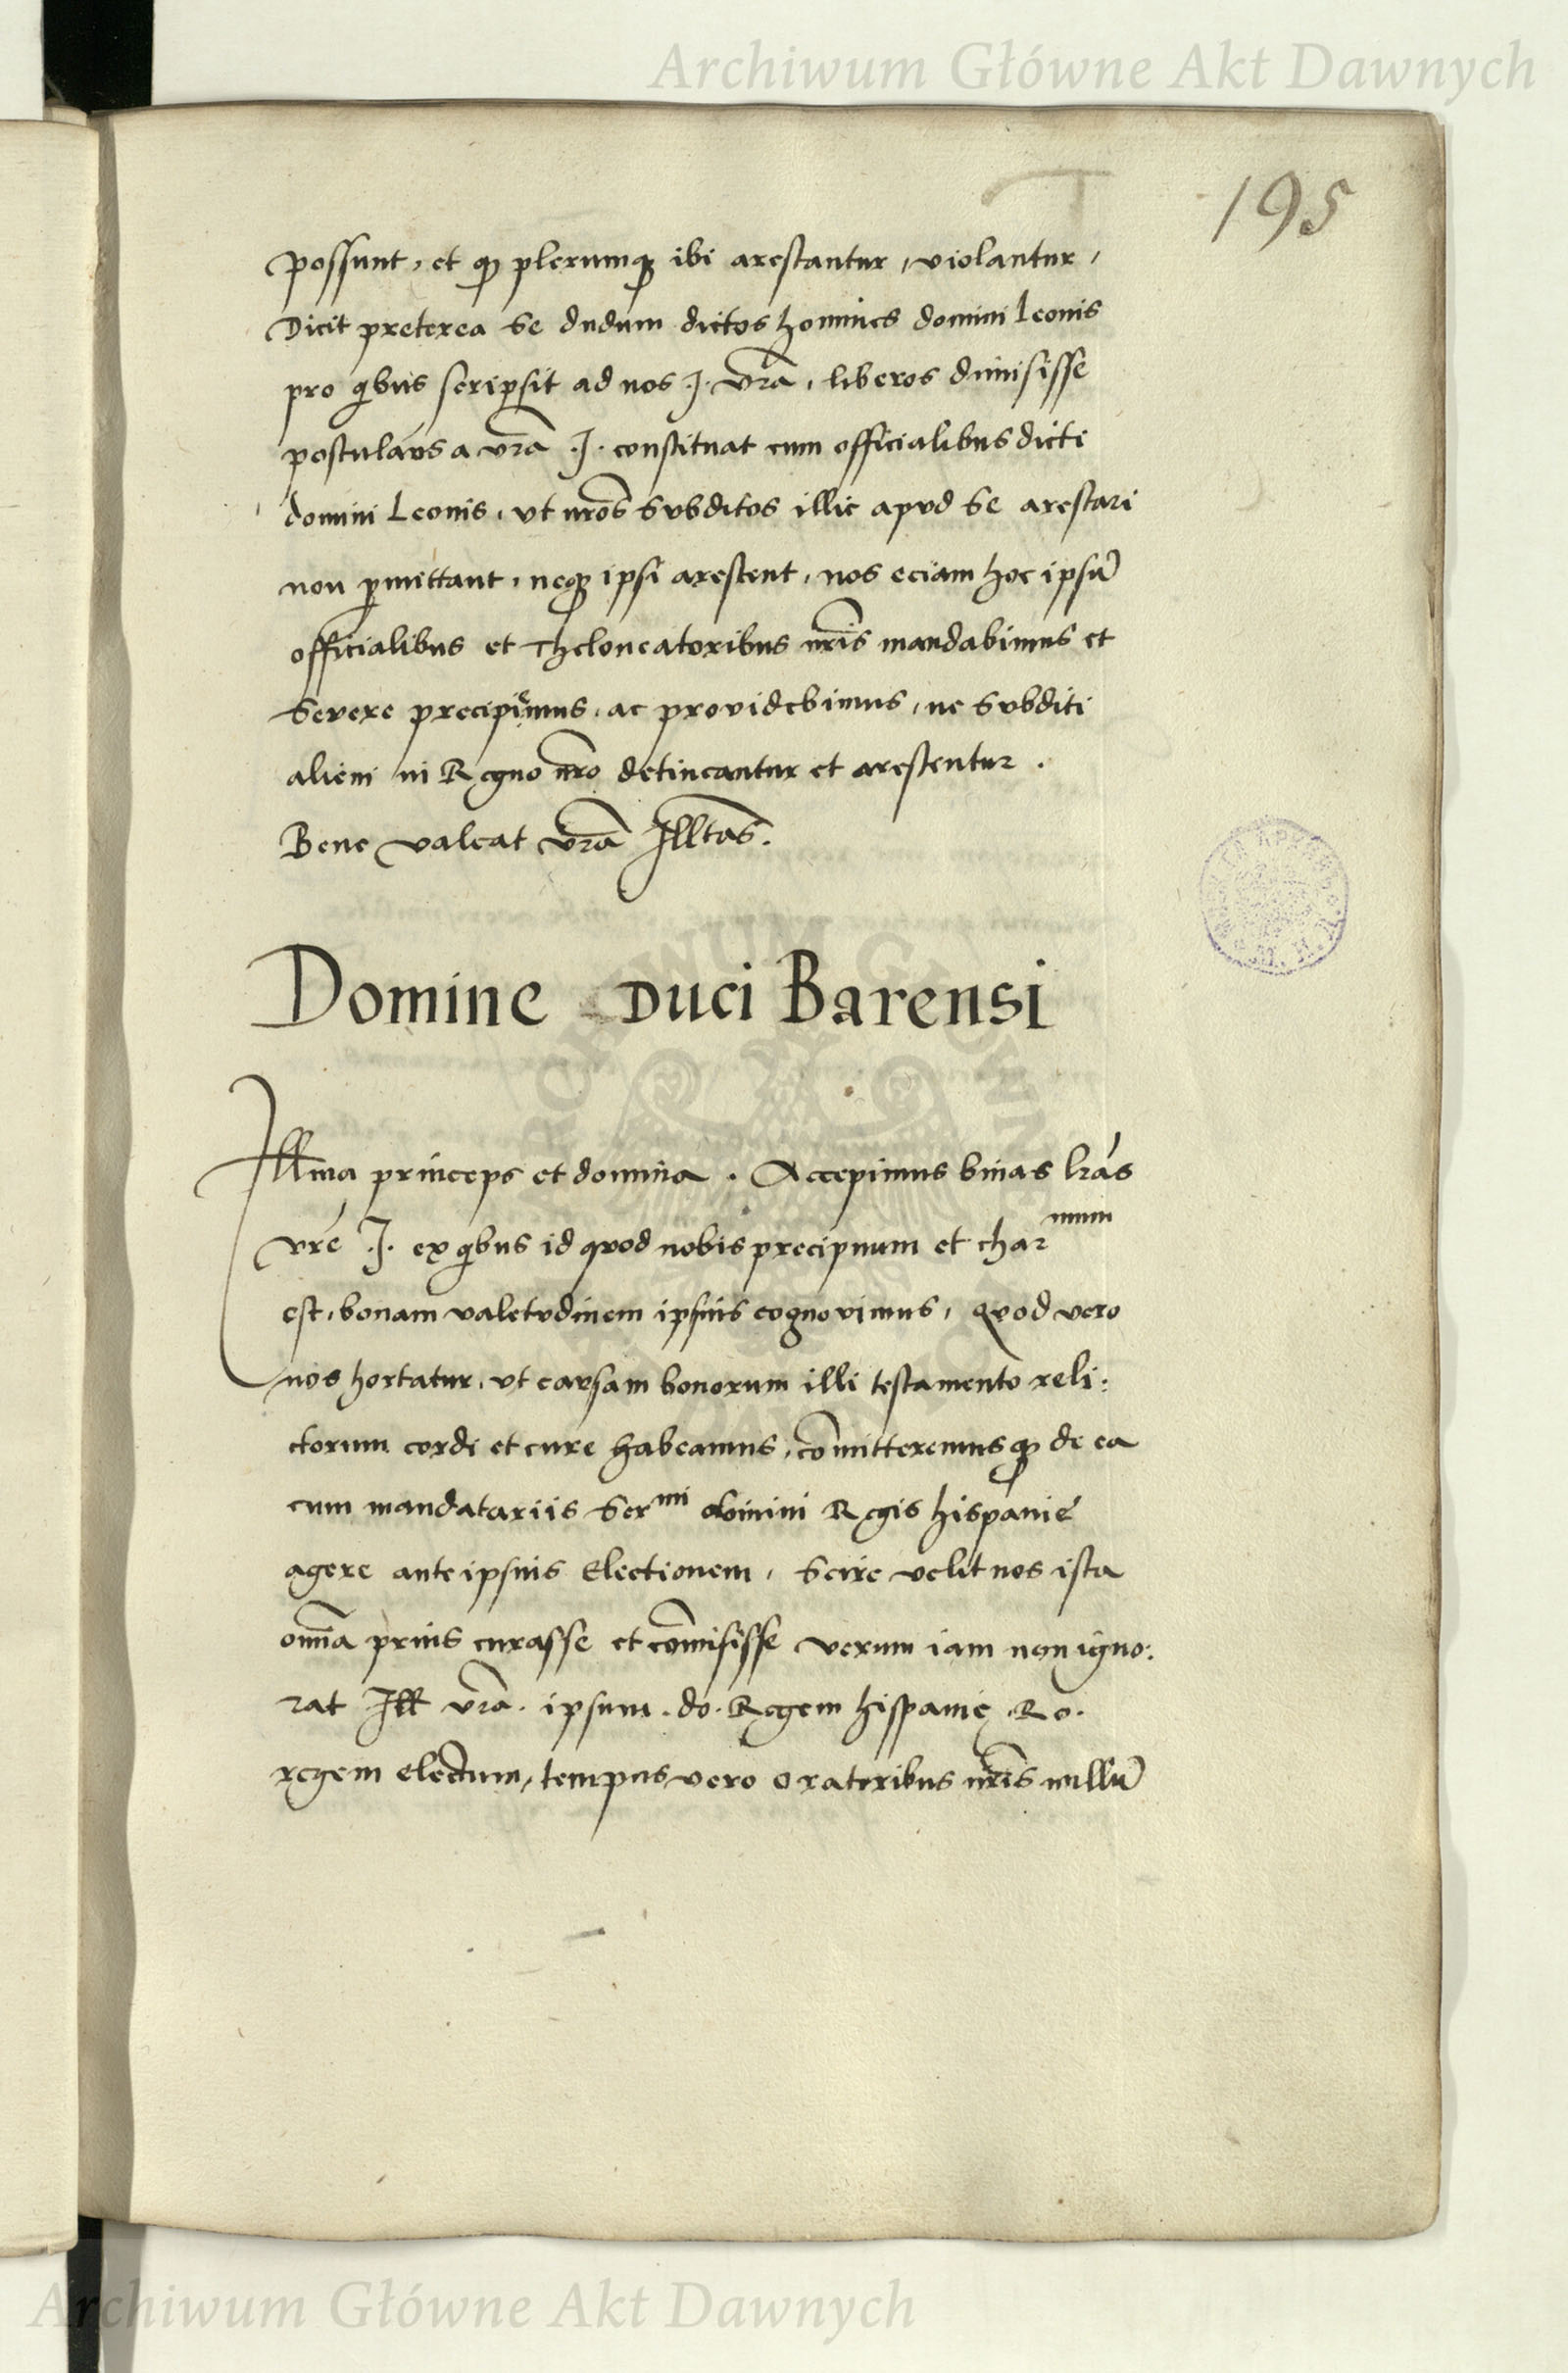 Archiwum Główne Akt Dawnych
195
possunt, et qȝ plerumqȝ ibi arestantur, violantur,
Dicit preterea se dudum dictos homines domini Leonis
pro qibus scripsit ad nos .I. vr̃a, liberos dimisisse
postulans a vr̃a .I. constituat cum officialibus dicti
domini Leonis, vt nr̃os svbditos illic apvd se arestari
non ꝑmittant, neqȝ ipsi arestent, nos eciam hoc ipsũ
officialibus et Theloneatoribus nr̃is mandabimus et
severe precipiemus, ac providebimus, ne svbditi
alieni in Regno nr̃o detineantur et arestentur.
Bene valeat vr̃a Illtas̃.
Domine Duci Barensi
Illma princeps et domina. Accepimus binas lr̃as
vr̃e .I. ex qibus id qvod nobis precipuum et charmum
est, bonam valetvdinem ipsius cognovimus, qvod vero
nos hortatur, vt cavsam bonorum illi testamento reli:
ctorum cordi et cure habeamus, com̃itteremusqȝ de ea
cum mandatariis Sermi domini Regis hispanie
agere ante ipsius Electionem, Scire velit nos ista
om̃ia prius curasse et com̃isisse verum iam non igno:
rat Ill vr̃a. ipsum .do. Regem hispanię .Ro.
regem electum, tempus vero oratoribus nr̃is nullũ
Archiwum Główne Akt Dawnych